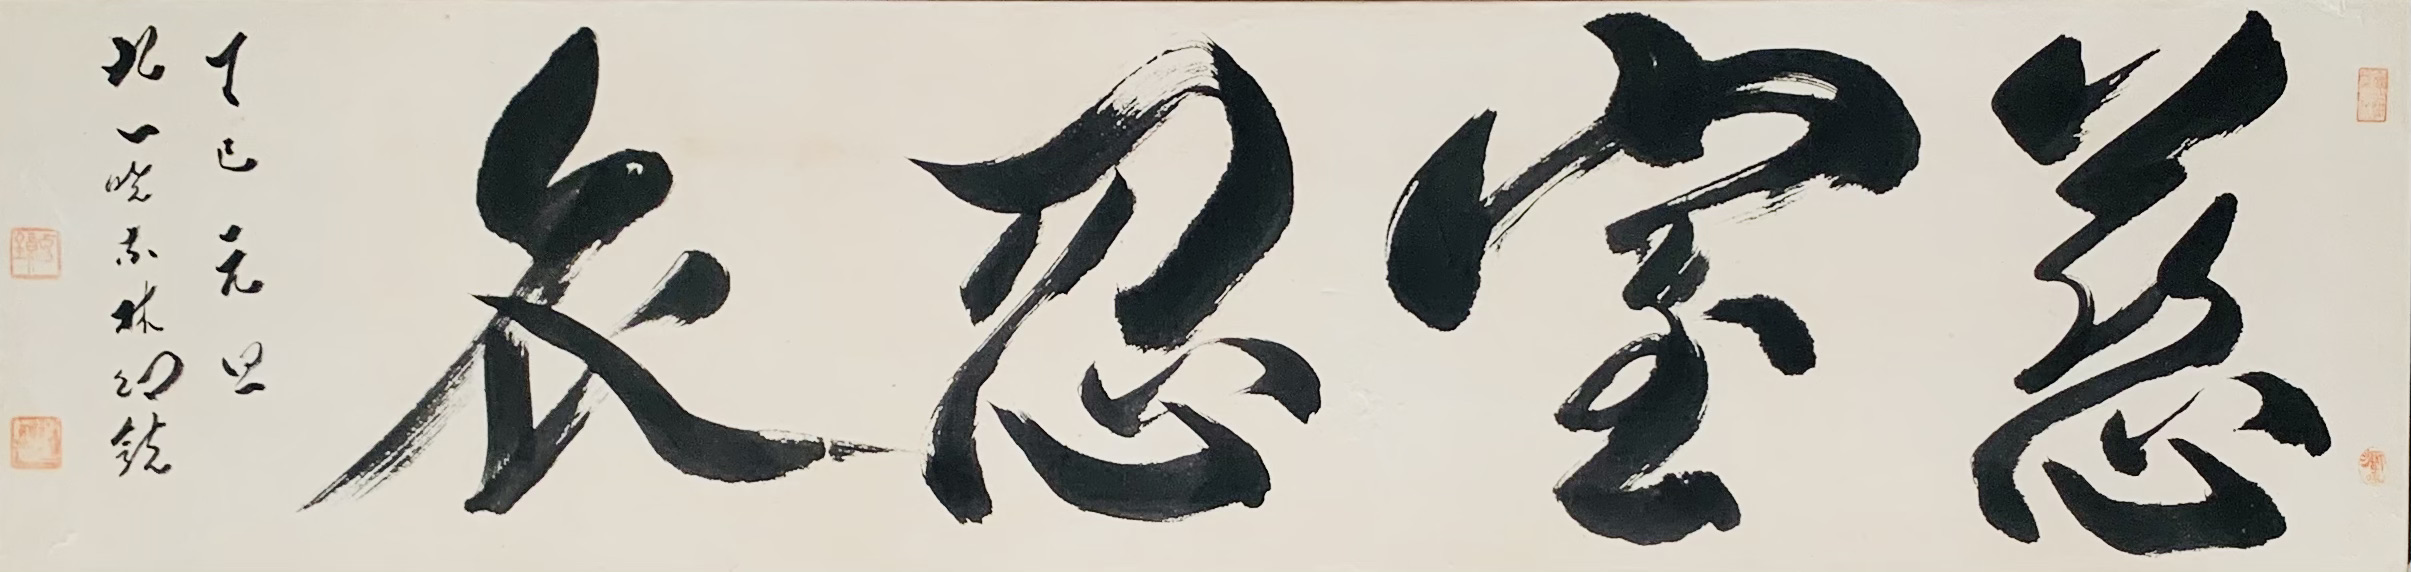 慈室忍衣
丁巳元旦
九一林幻鏡